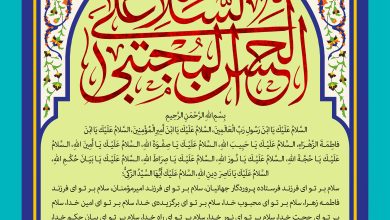 السلام علی
الحسن المجتبی
بِسْمِ اللَّهِ الرَّحْمَنِ الرَّحِيمِ
السَّلامُ عَلَيْكَ يَا ابْنَ رَسُولِ رَبِّ الْعَالَمِينَ، السَّلامُ عَلَيْكَ يَا ابْنَ أَمِيرِ الْمُؤْمِنِينَ، السَّلامُ عَلَيْكَ يَا ابْنَ
فَاطِمَةَ الزَّهْرَاءِ، السَّلامُ عَلَيْكَ يَا حَبِيبَ اللَّهِ، السَّلامُ عَلَيْكَ يَا صِفْوَةَ اللَّهِ، السَّلامُ عَلَيْكَ يَا أَمِينَ اللَّهِ، السَّلامُ
عَلَيْكَ يَا حُجَّةَ اللَّهِ، السَّلامُ عَلَيْكَ يَا نُورَ اللَّهِ، السَّلامُ عَلَيْكَ يَا صِرَاطَ اللَّهِ، السَّلامُ عَلَيْكَ يَا بَيَانَ حُكْمِ اللَّهِ،
السَّلامُ عَلَيْكَ يَا نَاصِرَ دِينِ اللَّهِ، السَّلامُ عَلَيْكَ أَيُّهَا السَّيِّدُ الزَّكِيُّ،
سلام بر تو ای فرزند فرستاده پروردگار جهانیان، سلام بر تو ای فرزند امیرمؤمنان، سلام بر تو ای فرزند
فاطمه زهرا، سلام بر تو ای محبوب خدا، سلام بر تو ای برگزیده‌ی خدا، سلام بر تو ای امین خدا، سلام
بر تو ای حجت خدا، سلام بر تو ای نور خدا، سلام بر تو ای راه خدا، سلام بر تو ای بیان حکم خدا،